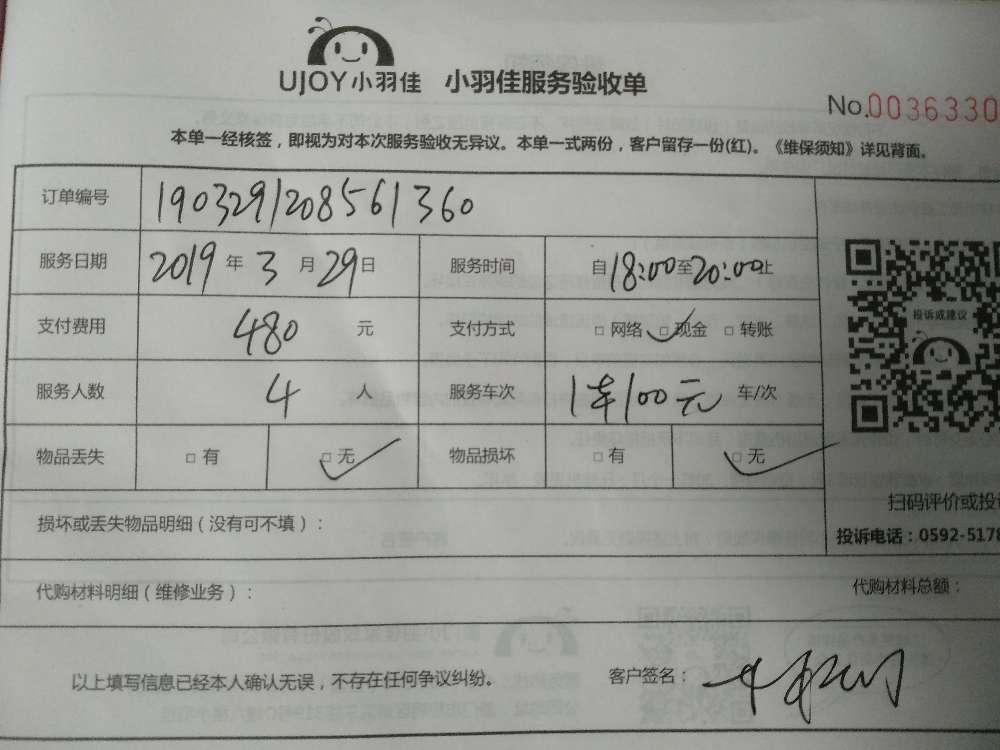 UJOY小羽佳 小羽佳服务验收单
No.0036330
本单一经核签，即视为对本次服务验收无异议。本单一式两份，客户留存一份(红)。《维保须知》详见背面。
订单编号 1903291208561360
服务日期 2019年3月29日 服务时间 自18:00至20:00止
支付费用 480元 支付方式 □网络 □现金 □转账
服务人数 4人 服务车次 1车100元 车/次
物品丢失 □有 □无 物品损坏 □有 □无
投诉或建议
扫码评价或投
投诉电话：0592-5178
损坏或丢失物品明细（没有可不填）：
代购材料明细（维修业务）： 代购材料总额：
以上填写信息已经本人确认无误，不存在任何争议纠纷。 客户签名：